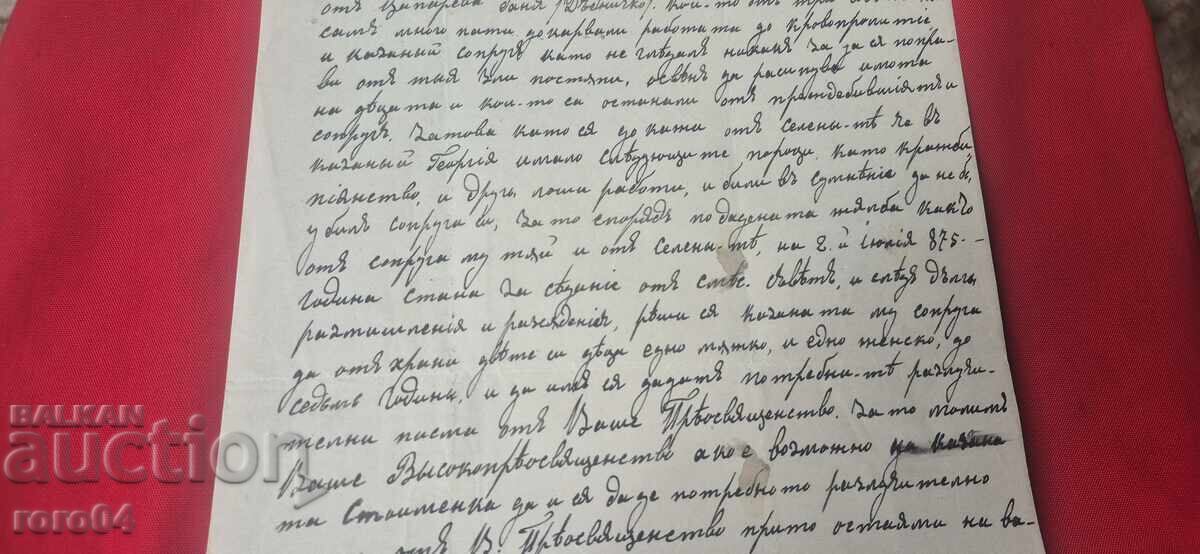 отъ Цапарева баня (Дѫбничко). кои-то отъ три
самъ много пати докарвали работата до кровопролитiе
и казаный сопругъ като не глѣдалъ никакъ за да ся попра-
ви отъ тия зли постъпи, освѣнъ да расипува имота
на дѣцата и кои-то са останали отъ
сопругъ. Затова като ся докажи отъ селени-тѣ че въ
казаный Георгiя имало слѣдующите пороци, като кражби
пiянство, и други лоши работи, и били въ сумнѣнiе да не бѫ
убилъ сопруга си, за то спорядъ подадената тѫжба какъто
отъ сопруга му тѫй и отъ селени-тѣ, на 2. й Iюлiя 875-
година стана засѣданiе отъ смѣс. съвѣтъ, и слѣдъ дълги
размишленiя и разсѫденiя, рѣши ся казаната му сопруга
да отъхрани двѣте си дѣца едно мѫжко, и едно женско, до
седьмъ година, и да имъ ся дадатъ потребни-тѣ разлѫчи-
телни писма отъ Ваше Прѣосвященство. За то молимъ
Ваше Высокопрѣосвященство ако е возможно на казана
та Стоименка да и ся даде потребното разлѫчително
отъ В. Прѣосвященство прито остаями на ва-
BALKAN
auction
roro04